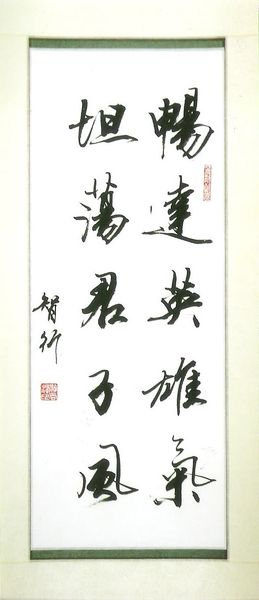 暢達英雄氣
坦蕩君子風
智行